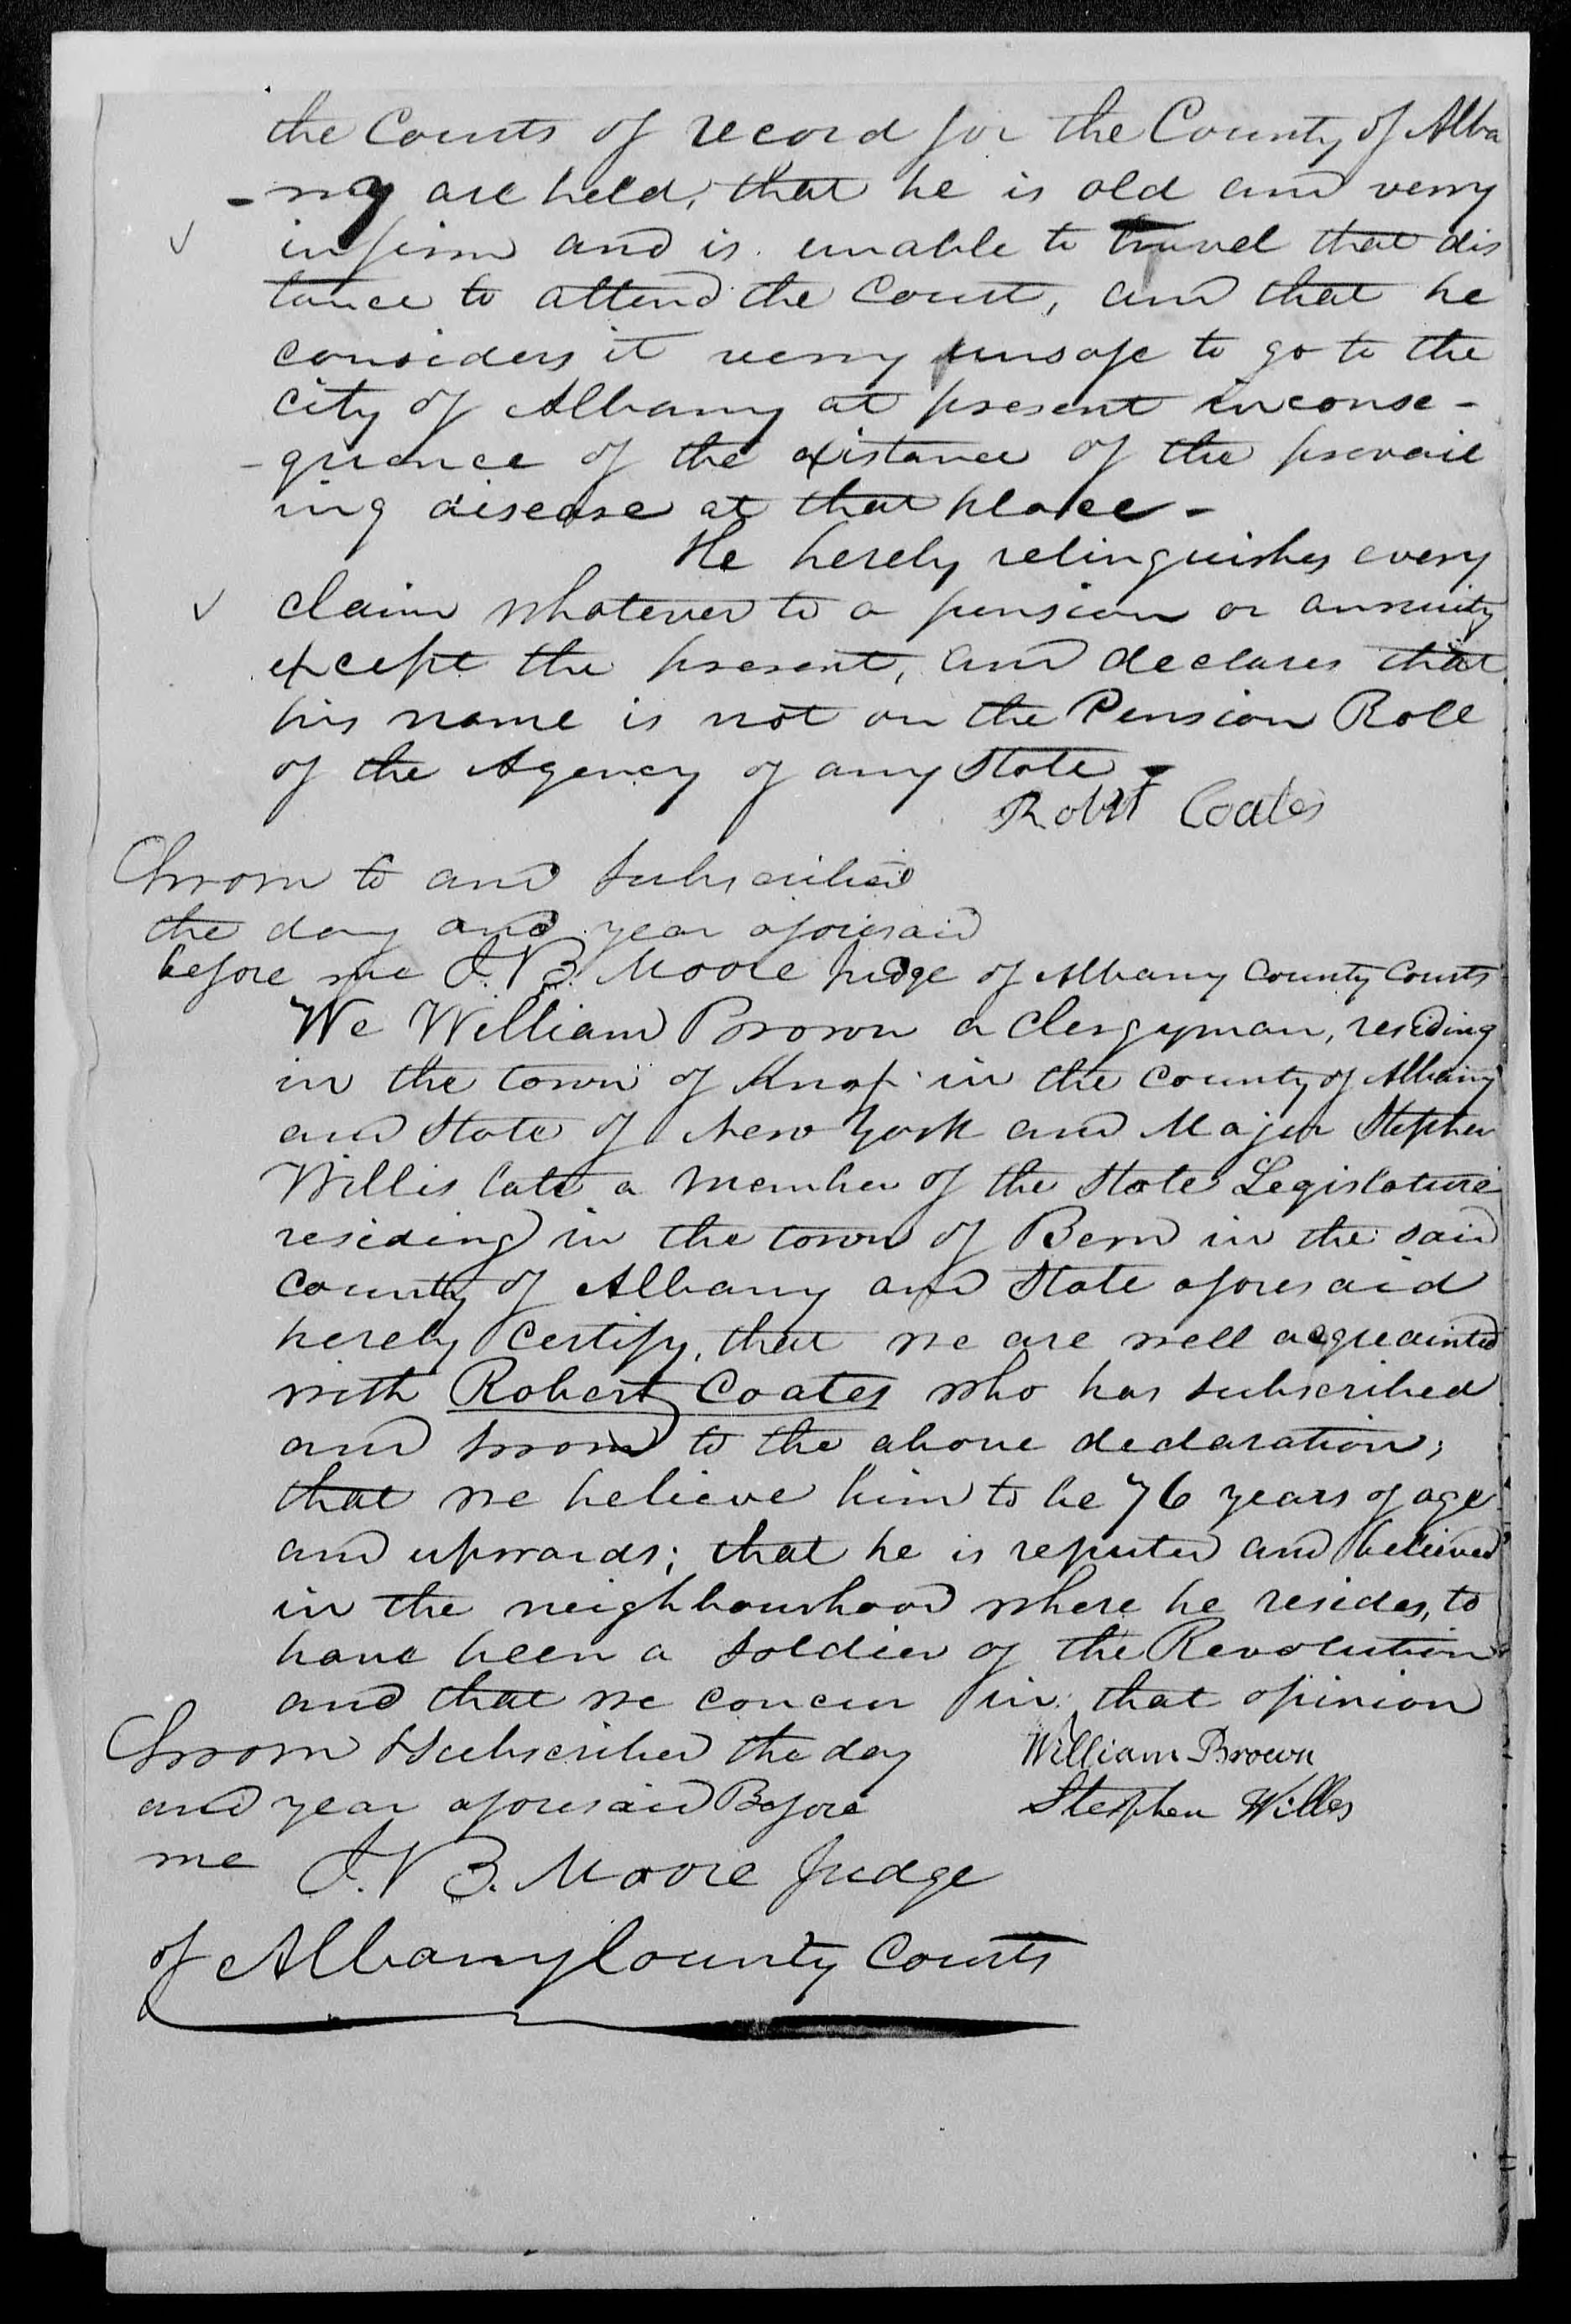 the Courts of record for the County of Alba
-ny are held, that he is old and verry
infirm and is unable to travel that dis
tance to attend the Court, and that he
considers it verry unsafe to go to the
city of Albany at present inconse-
-quence of the existance of the prevail
ing disease at that place-
He hereby relinquishes every
claim whatever to a pension or annuity
except the present, and declares that
his name is not on the Pension Roll
of the Agency of any State-
Robt Coates
Sworn to and Subscribed
the day and year aforesaid
before me J.V.B. Moore Judge of Albany County Courts
We William Brown a clergyman, residing
in the town of Knox in the County of Albany
and State of New York and Major Stephen
Willis late a member of the State Legislature
residing in the town of Bern in the said
County of Albany and State aforesaid
hereby certify, that we are well acqueainted
with Robert Coates who has subscribed
and sworn to the above declaration;
that we believe him to be 76 years of age
and upwards; that he is reputed and believed
in the neighbourhood where he resides, to
have been a Soldier of the Revolution
and that we concur in that opinion
Sworn & Subscribed the day
William Brown
and year aforesaid Before
Stephen Willes
me J.V.B. Moore Judge
of Albany County Courts